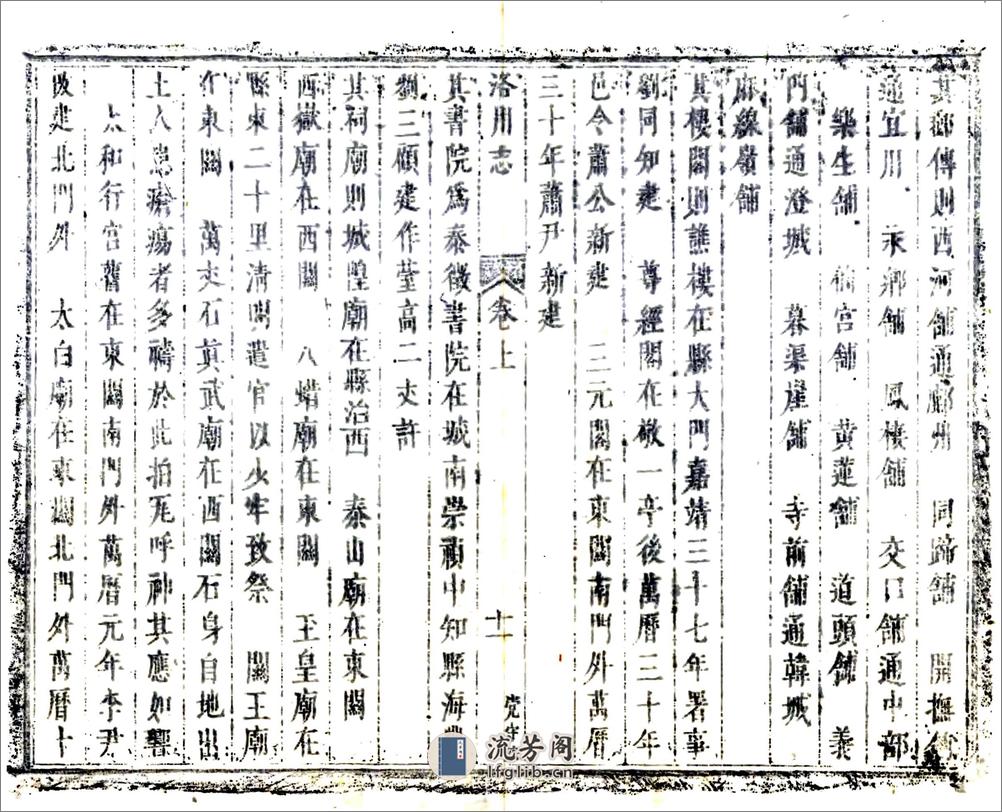 其郵傳則西河舖通鄜州　同蹄舖　開撫舖
通宜川　永鄉舖　鳳棲舖　交口舖通中部
樂生舖　楠宮舖　黃蓮舖　道頭舖　義
門舖通澄城　暮渠崖舖　寺前舖通韓城
麻線嶺舖
其樓閣則譙樓在縣大門嘉靖三十七年署事
劉同知建　尊經閣在敬一亭後萬曆三十年
邑令蕭公新建　三元閣在東關南門外萬曆
三十年蕭尹新建
洛川志　卷上　十一　党守
其書院爲泰徵書院在城南崇禎中知縣海豐
劉三顧建作臺高二丈許
其祠廟則城隍廟在縣治西　泰山廟在東關
西嶽廟在西關　八蜡廟在東關　玉皇廟在
縣東二十里清明遣官以少牢致祭　關王廟
在東關　萬丈石真武廟在西關石身自地出
土人患瘡瘍者多禱於此拍瓦呼神其應如響
太和行宮舊在東關南門外萬曆元年李尹
改建北門外　太白廟在東關北門外萬曆十
流芳阁
lfglib.cn